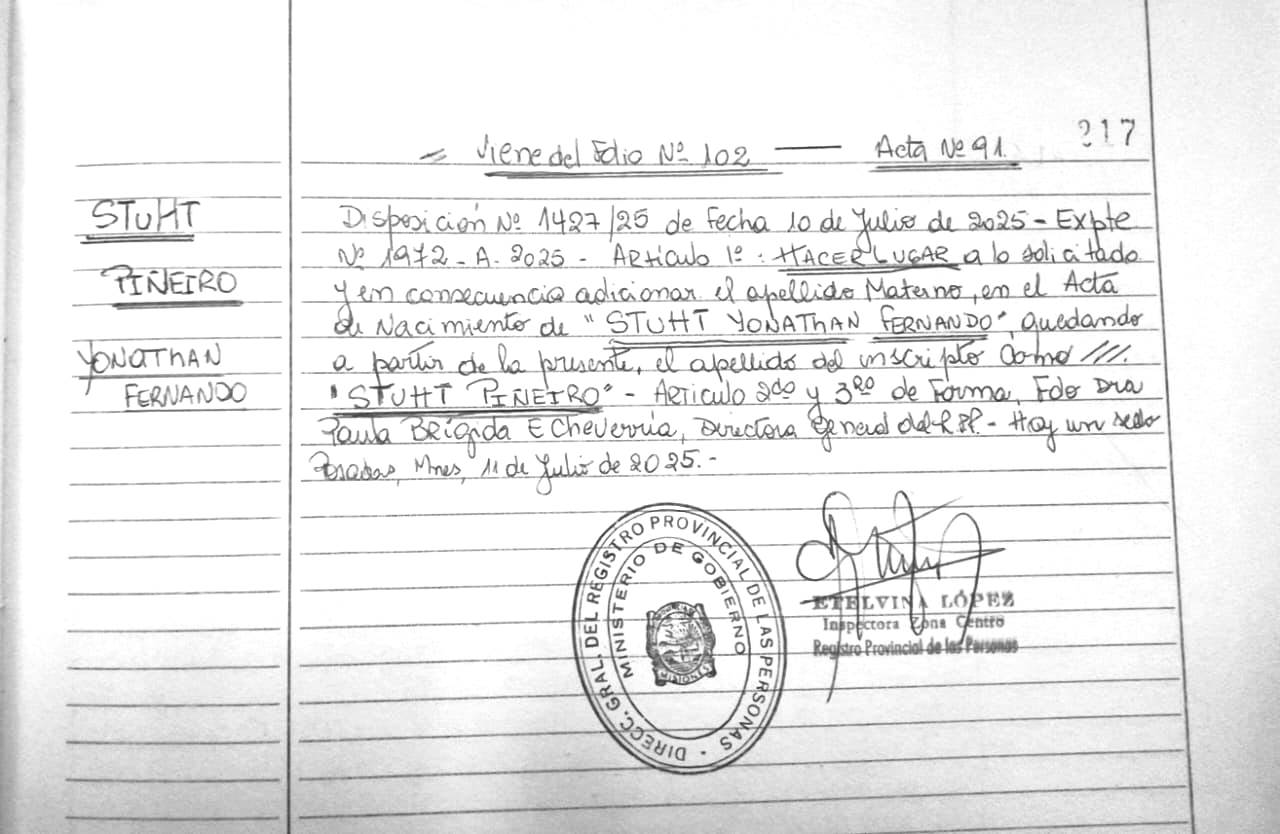 217
Viene del Folio Nº 102 — Acta Nº 91.
STUHT
PIÑEIRO
YONATHAN
FERNANDO
Disposición Nº 1427/25 de fecha 10 de Julio de 2025 - Expte
Nº 1972 - A - 2025 - Artículo 1º: HACER LUGAR a lo solicitado
y en consecuencia adicionar el apellido Materno, en el Acta
de Nacimiento de "STUHT YONATHAN FERNANDO", quedando
a partir de la presente, el apellido del inscripto Como ///.
"STUHT PIÑEIRO" - Articulo 2do y 3ro de Forma, Fdo Dra
Paula Brígida Echeverría, Directora General del R.P. - Hay un sello
Posadas, Mnes, 11 de Julio de 2025.-
DIRECC. GRAL. DEL REGISTRO PROVINCIAL DE LAS PERSONAS
MINISTERIO DE GOBIERNO
ETELVINA LÓPEZ
Inspectora Zona Centro
Registro Provincial de las Personas